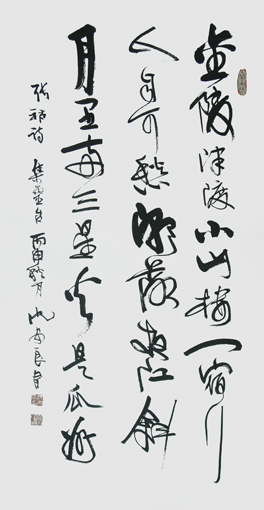 金陵津渡小山楼一宿行
人自可愁潮落夜江斜
月里两三星火是瓜洲
张祜诗 集墨台 丙申 月